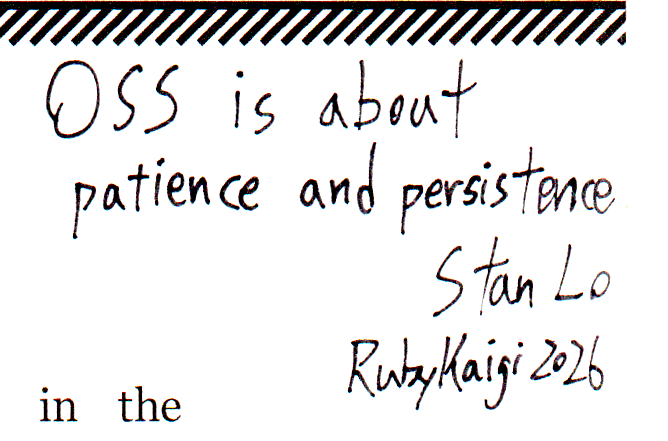 OSS is about
patience and persistence
Stan Lo
RubyKaigi 2026
in the